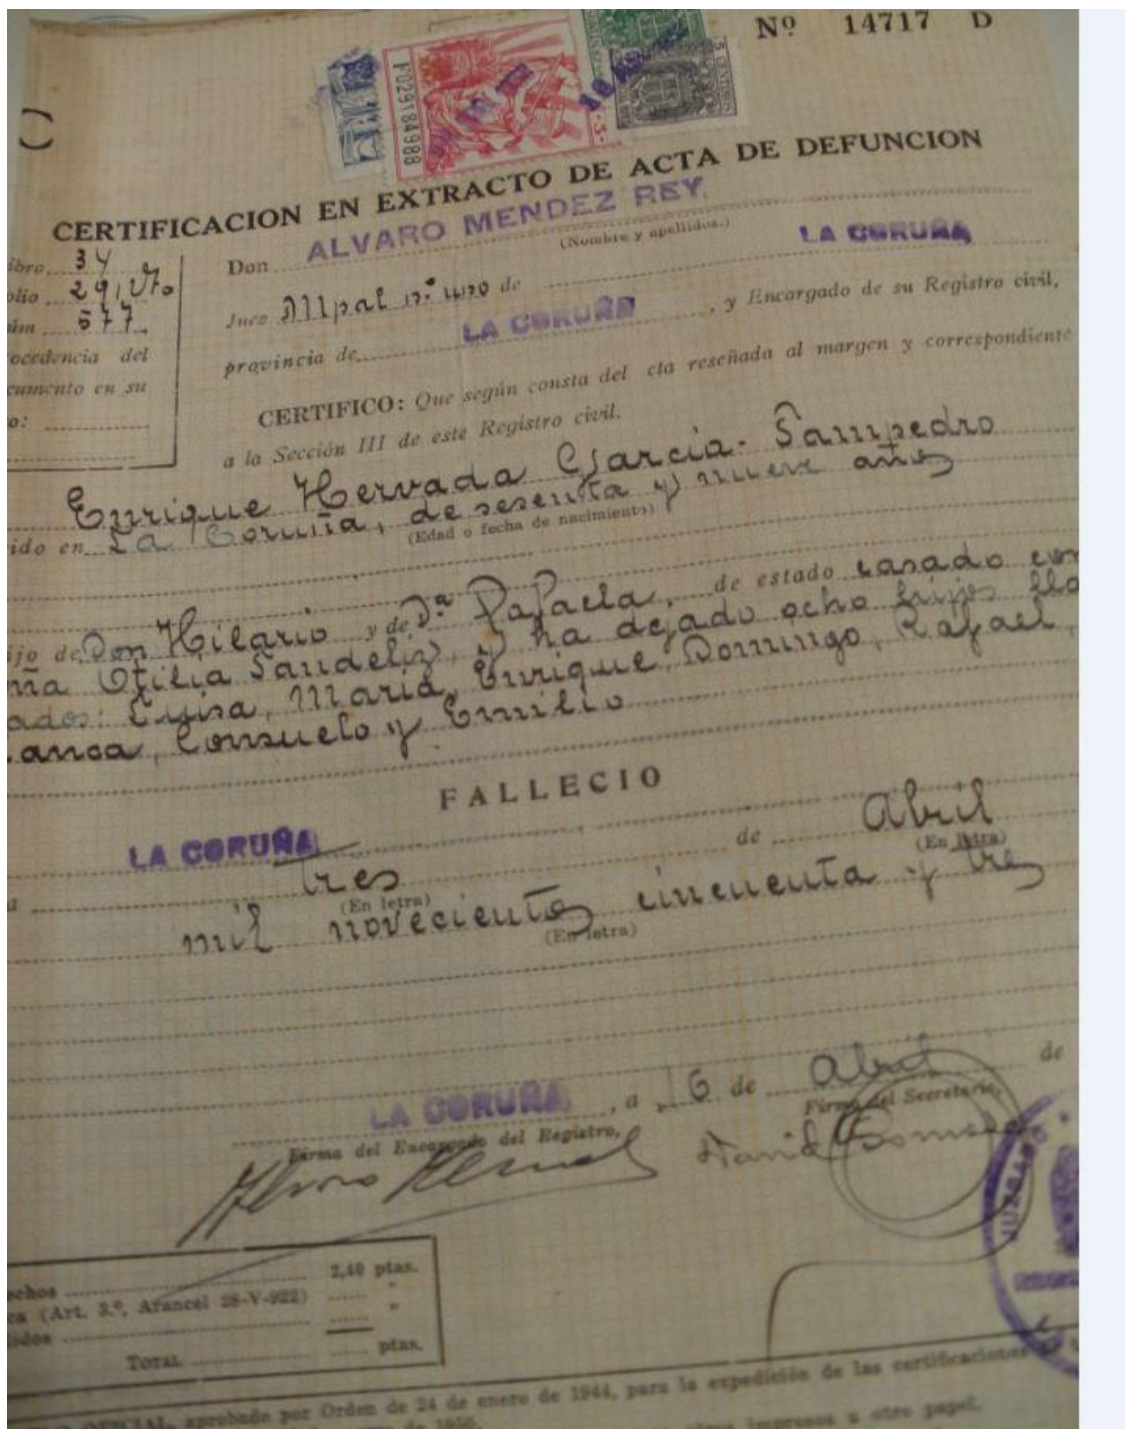 Nº 14717 D
P029184988
CERTIFICACION EN EXTRACTO DE ACTA DE DEFUNCION
ibro 34
olio 29, Vto
úm 577
ocedencia del
cumento en su
o:
Don ALVARO MENDEZ REY.
(Nombre y apellidos.)
Juez Mpal nº uno de LA CORUÑA
provincia de LA CORUÑA, y Encargado de su Registro civil,
CERTIFICO: Que según consta del cta reseñada al margen y correspondiente
a la Sección III de este Registro civil,
Enrique Hervada García-Sampedro
ido en La Coruña, de sesenta y nueve años
(Edad o fecha de nacimiento)
ijo de Don Hilario y de Dª Rafaela, de estado casado con
ña Otilia Sandeliz, y ha dejado ocho hijos lla
ados: Luisa, María, Enrique, Domingo, Rafael,
lanca, Consuelo y Emilio
FALLECIO
LA CORUÑA
Tres de Abril
(En letra) (En letra)
mil novecientos cincuenta y tres
(En letra)
LA CORUÑA, a 16 de Abril de
Firma del Encargado del Registro, Firma del Secretario,
JUZGADO
echos 2,40 ptas.
ca (Art. 3.º, Arancel 28-V-922) "
didos "
TOTAL ptas.
OFICIAL, aprobado por Orden de 24 de enero de 1944, para la expedición de las certificaciones
impresos u otro papel.